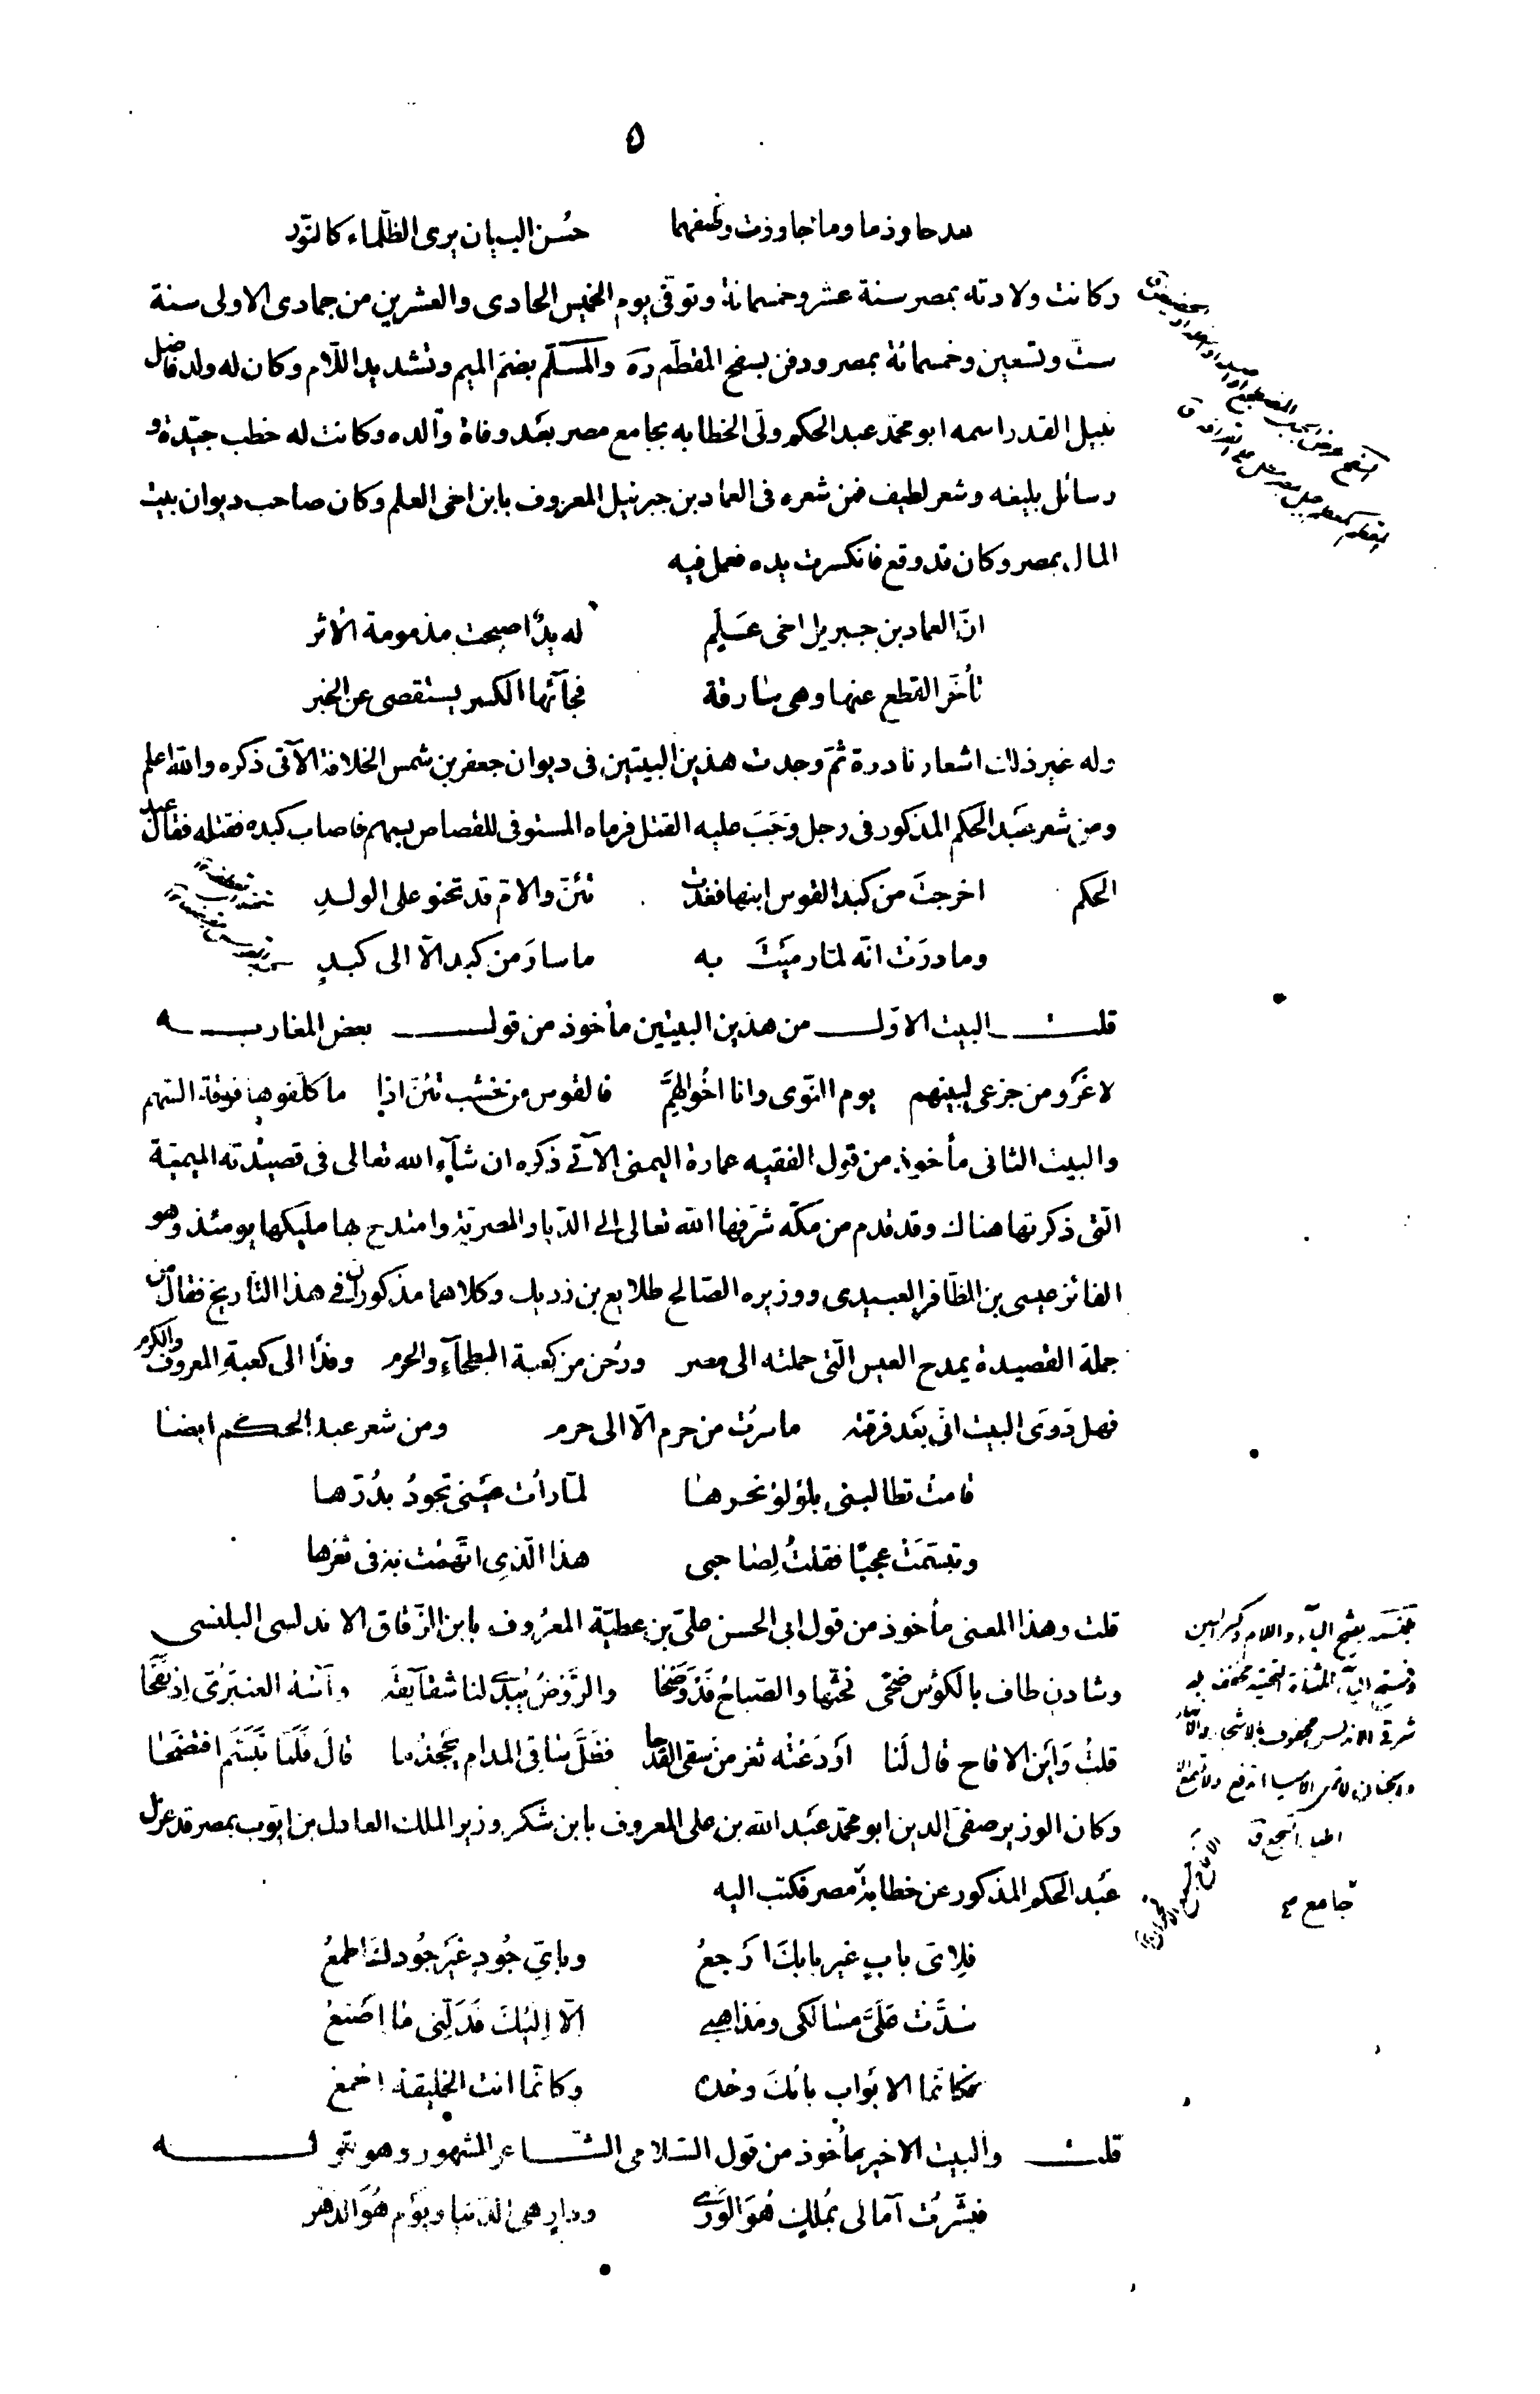 ٥
وما جاوزت وصفهما حُسن البيان يرى الظلماء كالنّور
وكانت ولادته بمصر سنة عشر وخمسمائة وتوفّى يوم الخميس الحادى والعشرين من جمادى الاولى سنة
ستّ وتسعين وخمسمائة بمصر ودفن بسفح المقطّم ره والمسلّم بضمّ الميم وتشديد اللّام وكان له ولد فاضل
نبيل القدر اسمه ابو محمّد عبد الحكم ولّى الخطابه بجامع مصر بعَد وفاة وآلده وكانت له خطب جيّدة و
رسائل بليغه وشعر لطيف فمن شعره فى العماد بن جبرئيل المعروف بابن اخى العلم وكان صاحب ديوان بيت
المال بمصر وكان قد وقع فانكسرت يده فعمل فيه
انّ العماد بن جبريل اخى عَلَم له يدٌ اصبحت مذمومة الأثر
تأخّر القطع عنها وهى سارقة فجآئها الكسر يستقصى عن الخبر
وله غير ذلك اشعار نادرة ثمّ وجدت هذين البيتين فى ديوان جعفر بن شمس الخلافة الآتى ذكره والله اعلم
ومن شعر عَبد الحكم المذكور فى رجل وَجَبَ عليه القتل فرماه المستوفى للقصاص بسهم فاصاب كبده فقتله فقال عبد
الحكم اخرجتَ من كبَد القوس ابنها فغدت تئنّ والامّ قد تحنو على الولدِ
وما درَت انّه لمّا رميَتَ به ما سارَ من كبد الّا الى كبدٍ
قلت البيت الاوّل من هذين البيتين مأخوذ من قول بعض المغاربه
لا غَرو من جزعى لبينهم يوم النّوى وانا اخُو الهمّ فالقوس من خشب تئنّ اذا ما كلّفوها فرقة السّهم
والبيت الثانى مأخوذ من قول الفقيه عمارة اليمنى الآتى ذكره ان شآء الله تعالى فى قصيدته الميميّة
الّتى ذكرتها هناك وقد قدم من مكّه شرّفها الله تعالى الى الدّيار المصريّة وامتدح بها مليكها يومئذ وهو
الفائز عيسى بن الظّافر العبيدى ووزيره الصّالح طلايع بن رزيك وكلاهما مذكوران فى هذا التأريخ فقال من
جملة القصيدة يمدح العيس الّتى حملته الى مصر ورُحن من كعبة البطحآءِ والحرم وفدًا الى كعبةِ المعروف والكرم
فهل دَرَى البيت انّى بَعد فرقته ما سرُت من حرم الّا الى حرم ومن شعر عبد الحكم ايضا
قامتْ تطالبنى بلؤلؤ نحرها لمّا رأت عَينى تجودُ بدُرّها
وتبسّمَتْ عجبًا فقلتُ لِصاحبى هذا الّذى اتّهمت به فى ثغرها
قلت وهذا المعنى مأخوذ من قول ابى الحسن علىّ بن عطيّة المعرُوف بابن الزّقاق الاندلسى البلنسى
وشادن طاف بالكؤس ضحًى فحثّها والصّباحُ قَدْ وَضَحا والرَّوضُ يُبدى لنا شقآيقَه وآسُهُ العنبَرُىّ اِذ نَفَحَا
قلتُ وَاَين الاقاح قال لَنا اَودَعْتُه ثغر من سقى القدحا فظَلَّ سَاقى المدام يجحَد ما قالَ فَلَمّا تَبَسَّم افتضحا
وكان الوزير صفىّ الدين ابو محمّد عَبد الله بن على المعروف بابن شكر وزير الملك العادل بن ايّوب بمصر قد عزل
عَبد الحكم المذكور عن خطابة مصر فكتب اليه
فلِاىّ باب غير بابكَ اَرجعُ وباىّ جُودٍ غَيَر جُودك اَطمعُ
سُدَّتْ علىَّ مسالكى ومَذاهبى الّا اِليْكَ فَدلّنى ما اَصنعُ
فكانّما الابَواب بابُكَ وحَده وكانّما انت الخليقة اجمع
قلت والبيت الاخير مأخوذ من قول السّلامى الشّاعر المشهور وهو قوله
فبشّرُت آمالى بمُلكٍ هُوَ الوَرَى ودارٍ هى الدّنيا ويَوُم هُوَ الدهر
بلنسَه بفتح البآء واللام وكسر السين
شرقى الاندلس محفوف بالاشجار
جامع